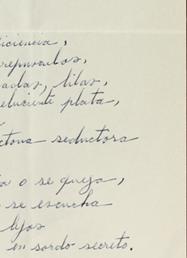 iciencia,
crepúsculos,
adas, lilas,
eluciente plata,
ctona seductora
a o se queja,
o se escucha
lejos
en sordo secreto.